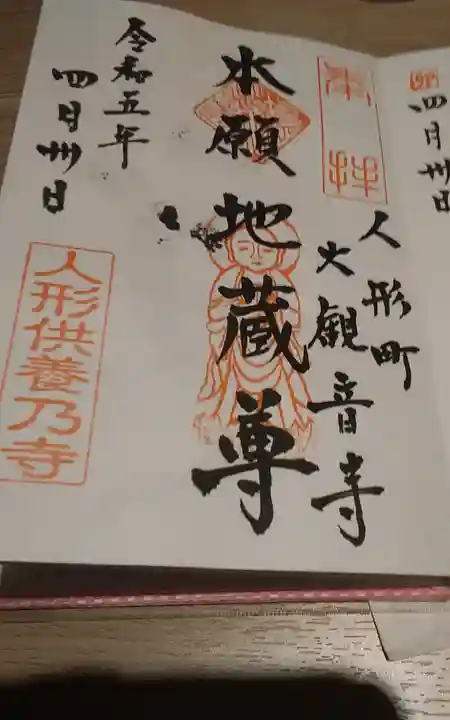 四月卅日
奉拝
人形町
大観音寺
水願地蔵尊
令和五年
四月卅日
人形供養乃寺